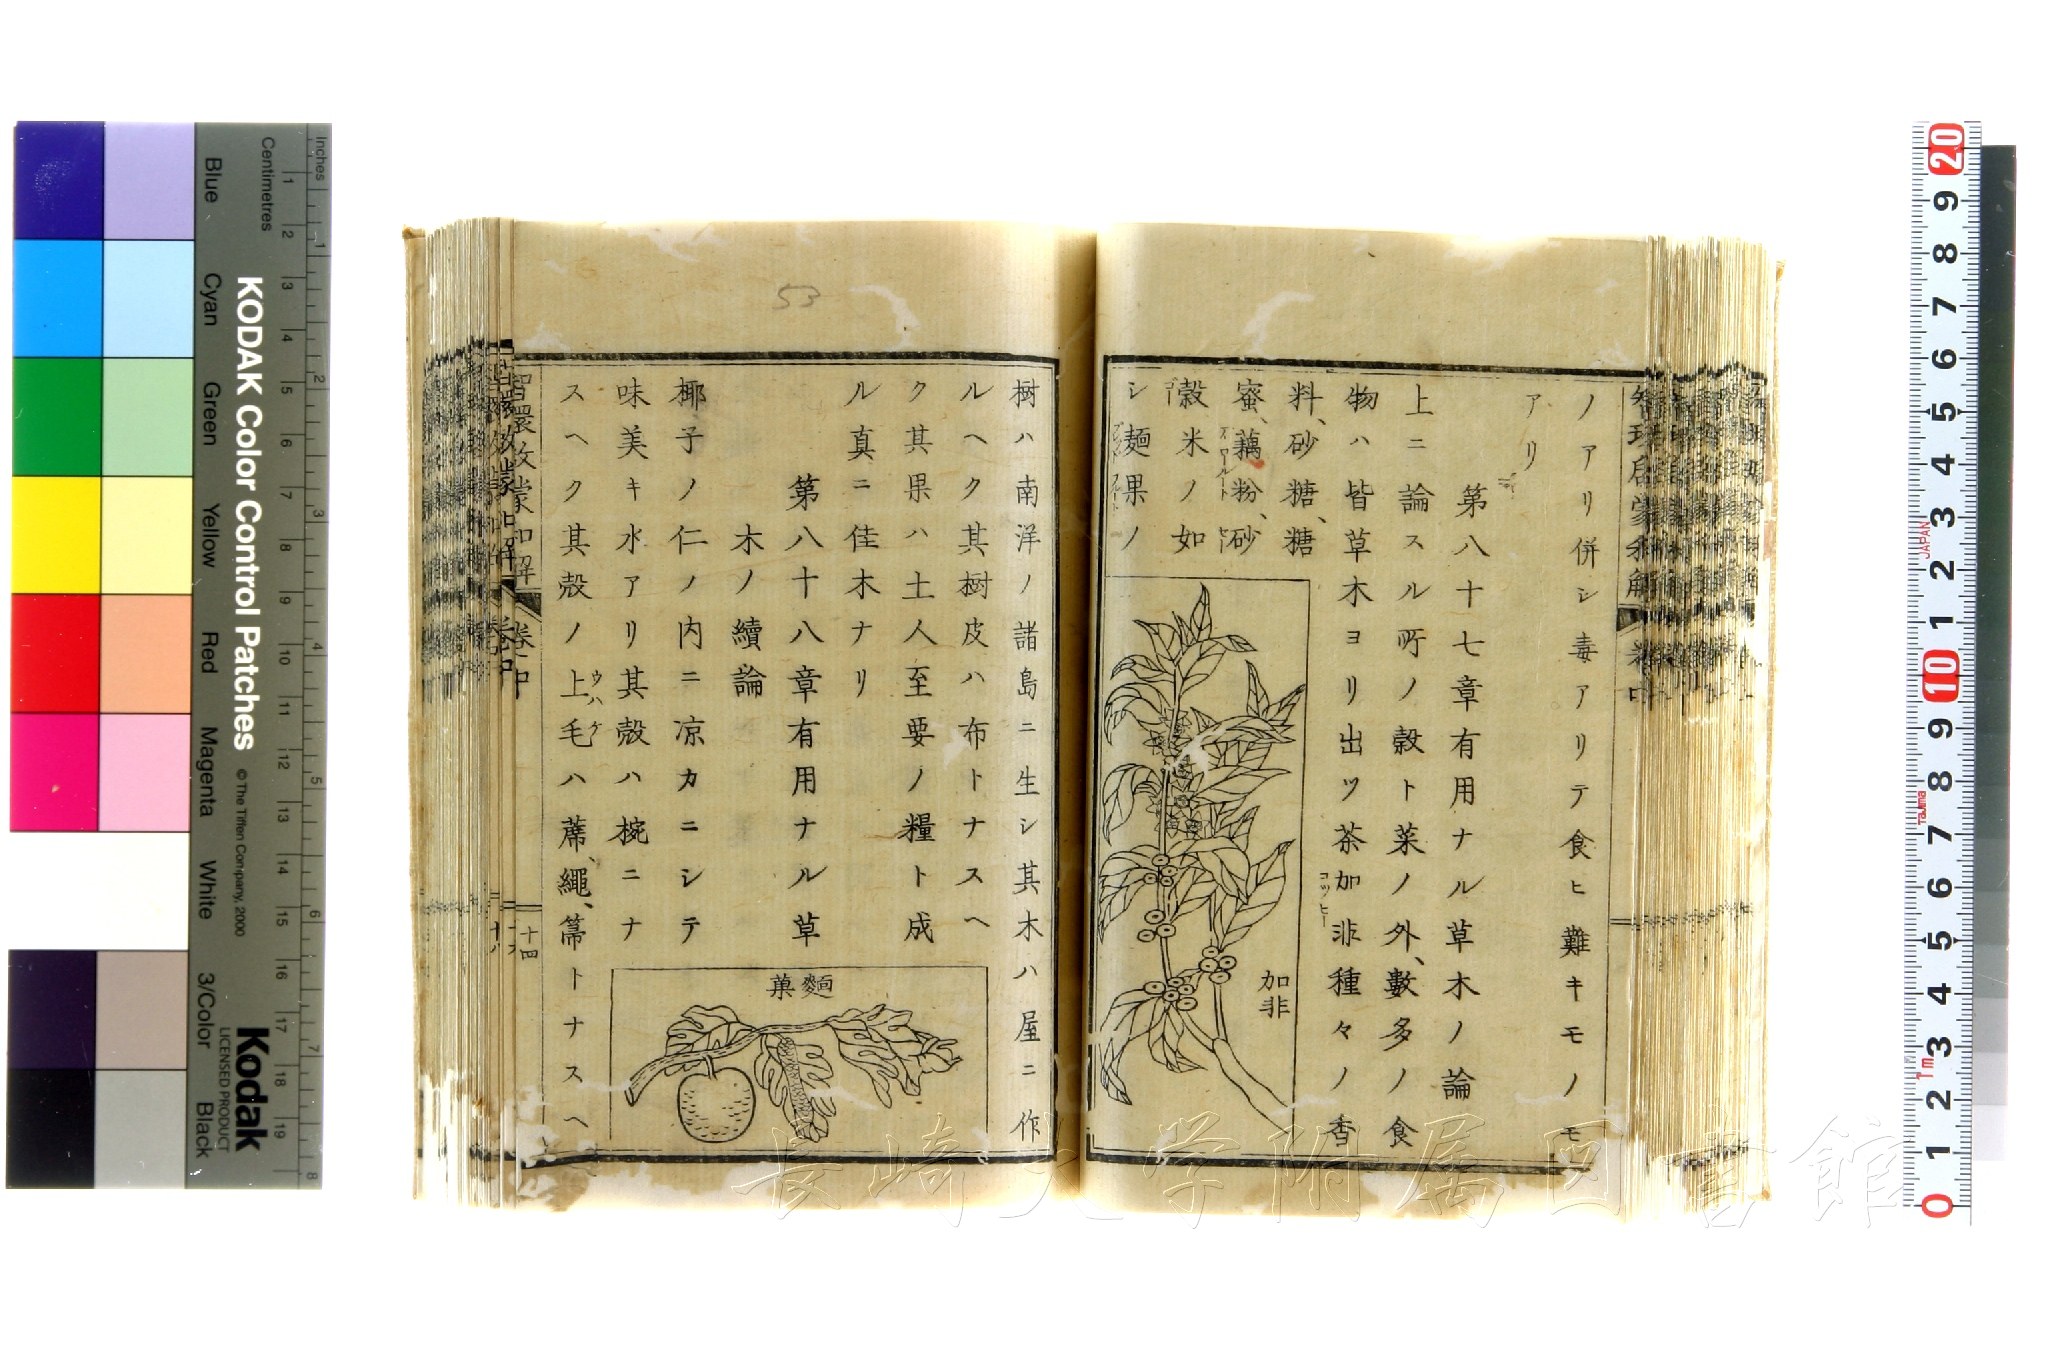 ノアリ併シ毒アリテ食ヒ難キモノモ
アリ
第八十七章有用ナル草木ノ論
上ニ論スル所ノ穀ト菜ノ外、數多ノ食
物ハ皆草木ヨリ出ツ茶加非種々ノ香
コッヒー
料、砂糖、糖
蜜、藕粉、砂
穀米ノ如
シ麺果ノ
加非
樹ハ南洋ノ諸島ニ生シ其木ハ屋ニ作
ルヘク其樹皮ハ布トナスヘ
ク其果ハ土人至要ノ糧ト成
ル真ニ佳木ナリ
第八十八章有用ナル草
木ノ續論
椰子ノ仁ノ内ニ凉カニシテ
味美キ水アリ其殻ハ椀ニナ
スヘク其殻ノ上毛ハ蓆、繩、箒トナスヘ
ウハケ
麵菓
智環啓蒙和解
卷中
十四
53
長崎大学附属図書館
KODAK Color Control Patches
© The Tiffen Company, 2000
Kodak
LICENSED PRODUCT
Inches
Centimetres
1 2 3 4 5 6 7 8 9 10 11 12 13 14 15 16 17 18 19
1 2 3 4 5 6 7 8
Blue
Cyan
Green
Yellow
Red
Magenta
White
3/Color
Black
20 9 8 7 6 5 4 3 2 1 10 9 8 7 6 5 4 3 2 1 0
JAPAN
Tajima